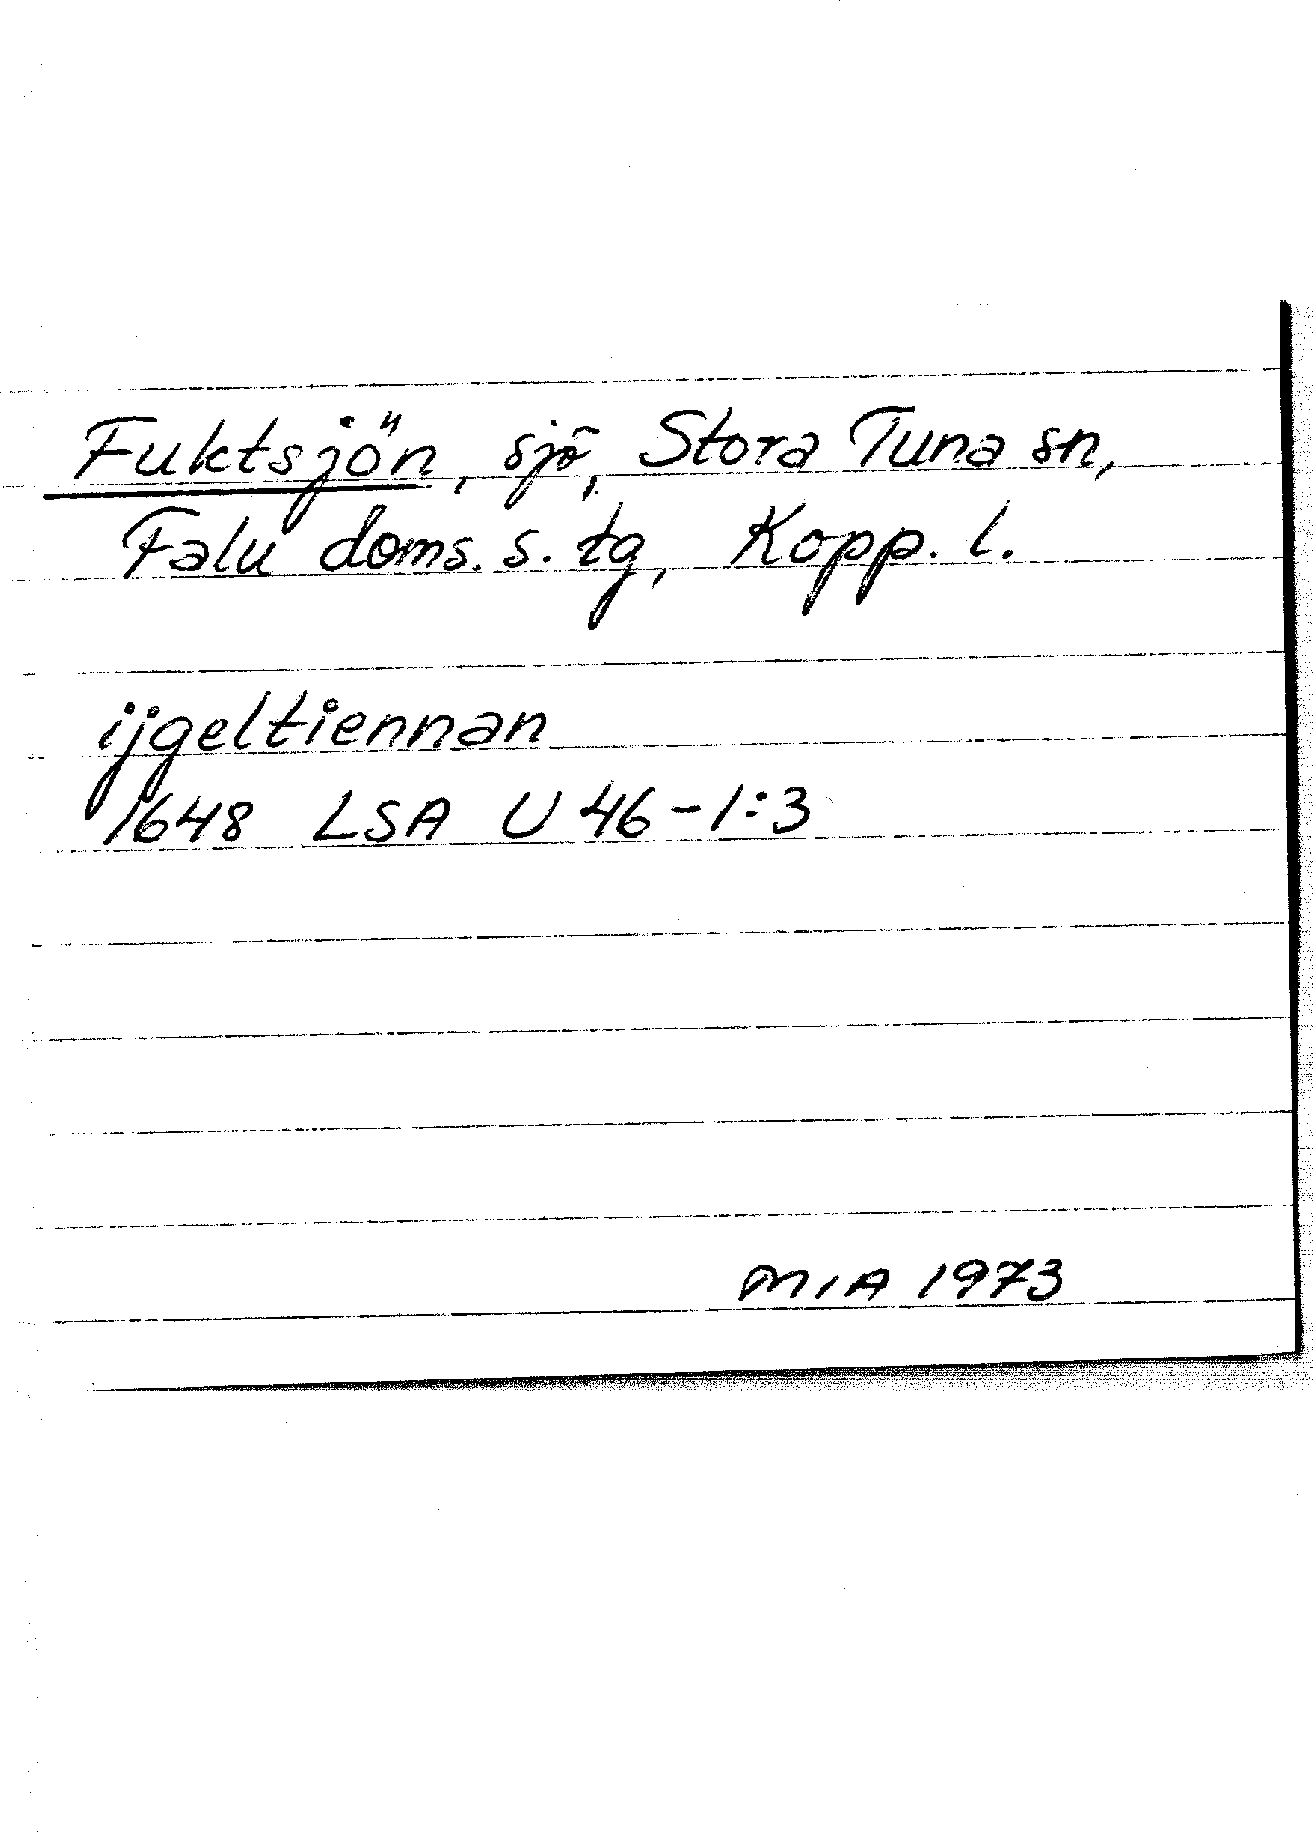 Fuktsjön, sjö, Stora Tuna sn,
Falu doms. s. tg, Kopp. l.
ijgeltiennan
1648 LSA U 46-1:3
MIA 1973